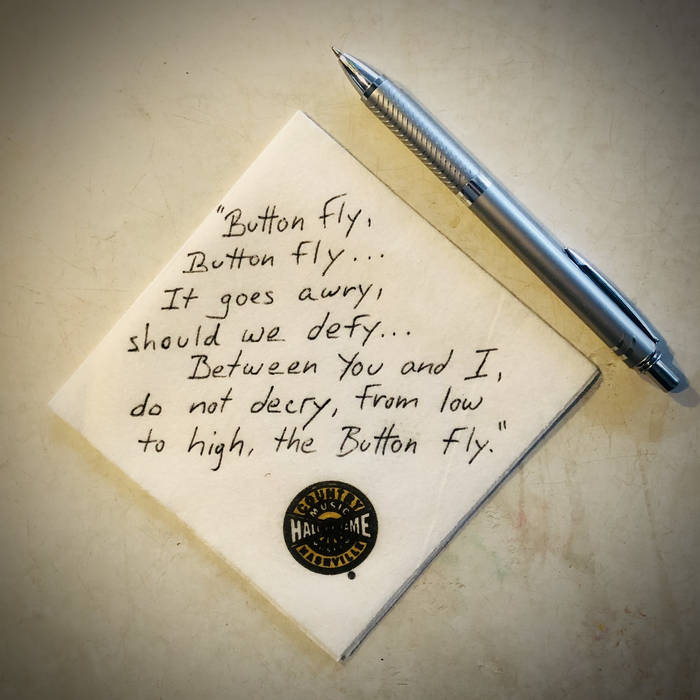 "Button Fly,
Button fly...
It goes awry,
should we defy...
Between You and I,
do not decry, from low
to high, the Button Fly."
COUNTRY
MUSIC
HALL OF FAME
NASHVILLE